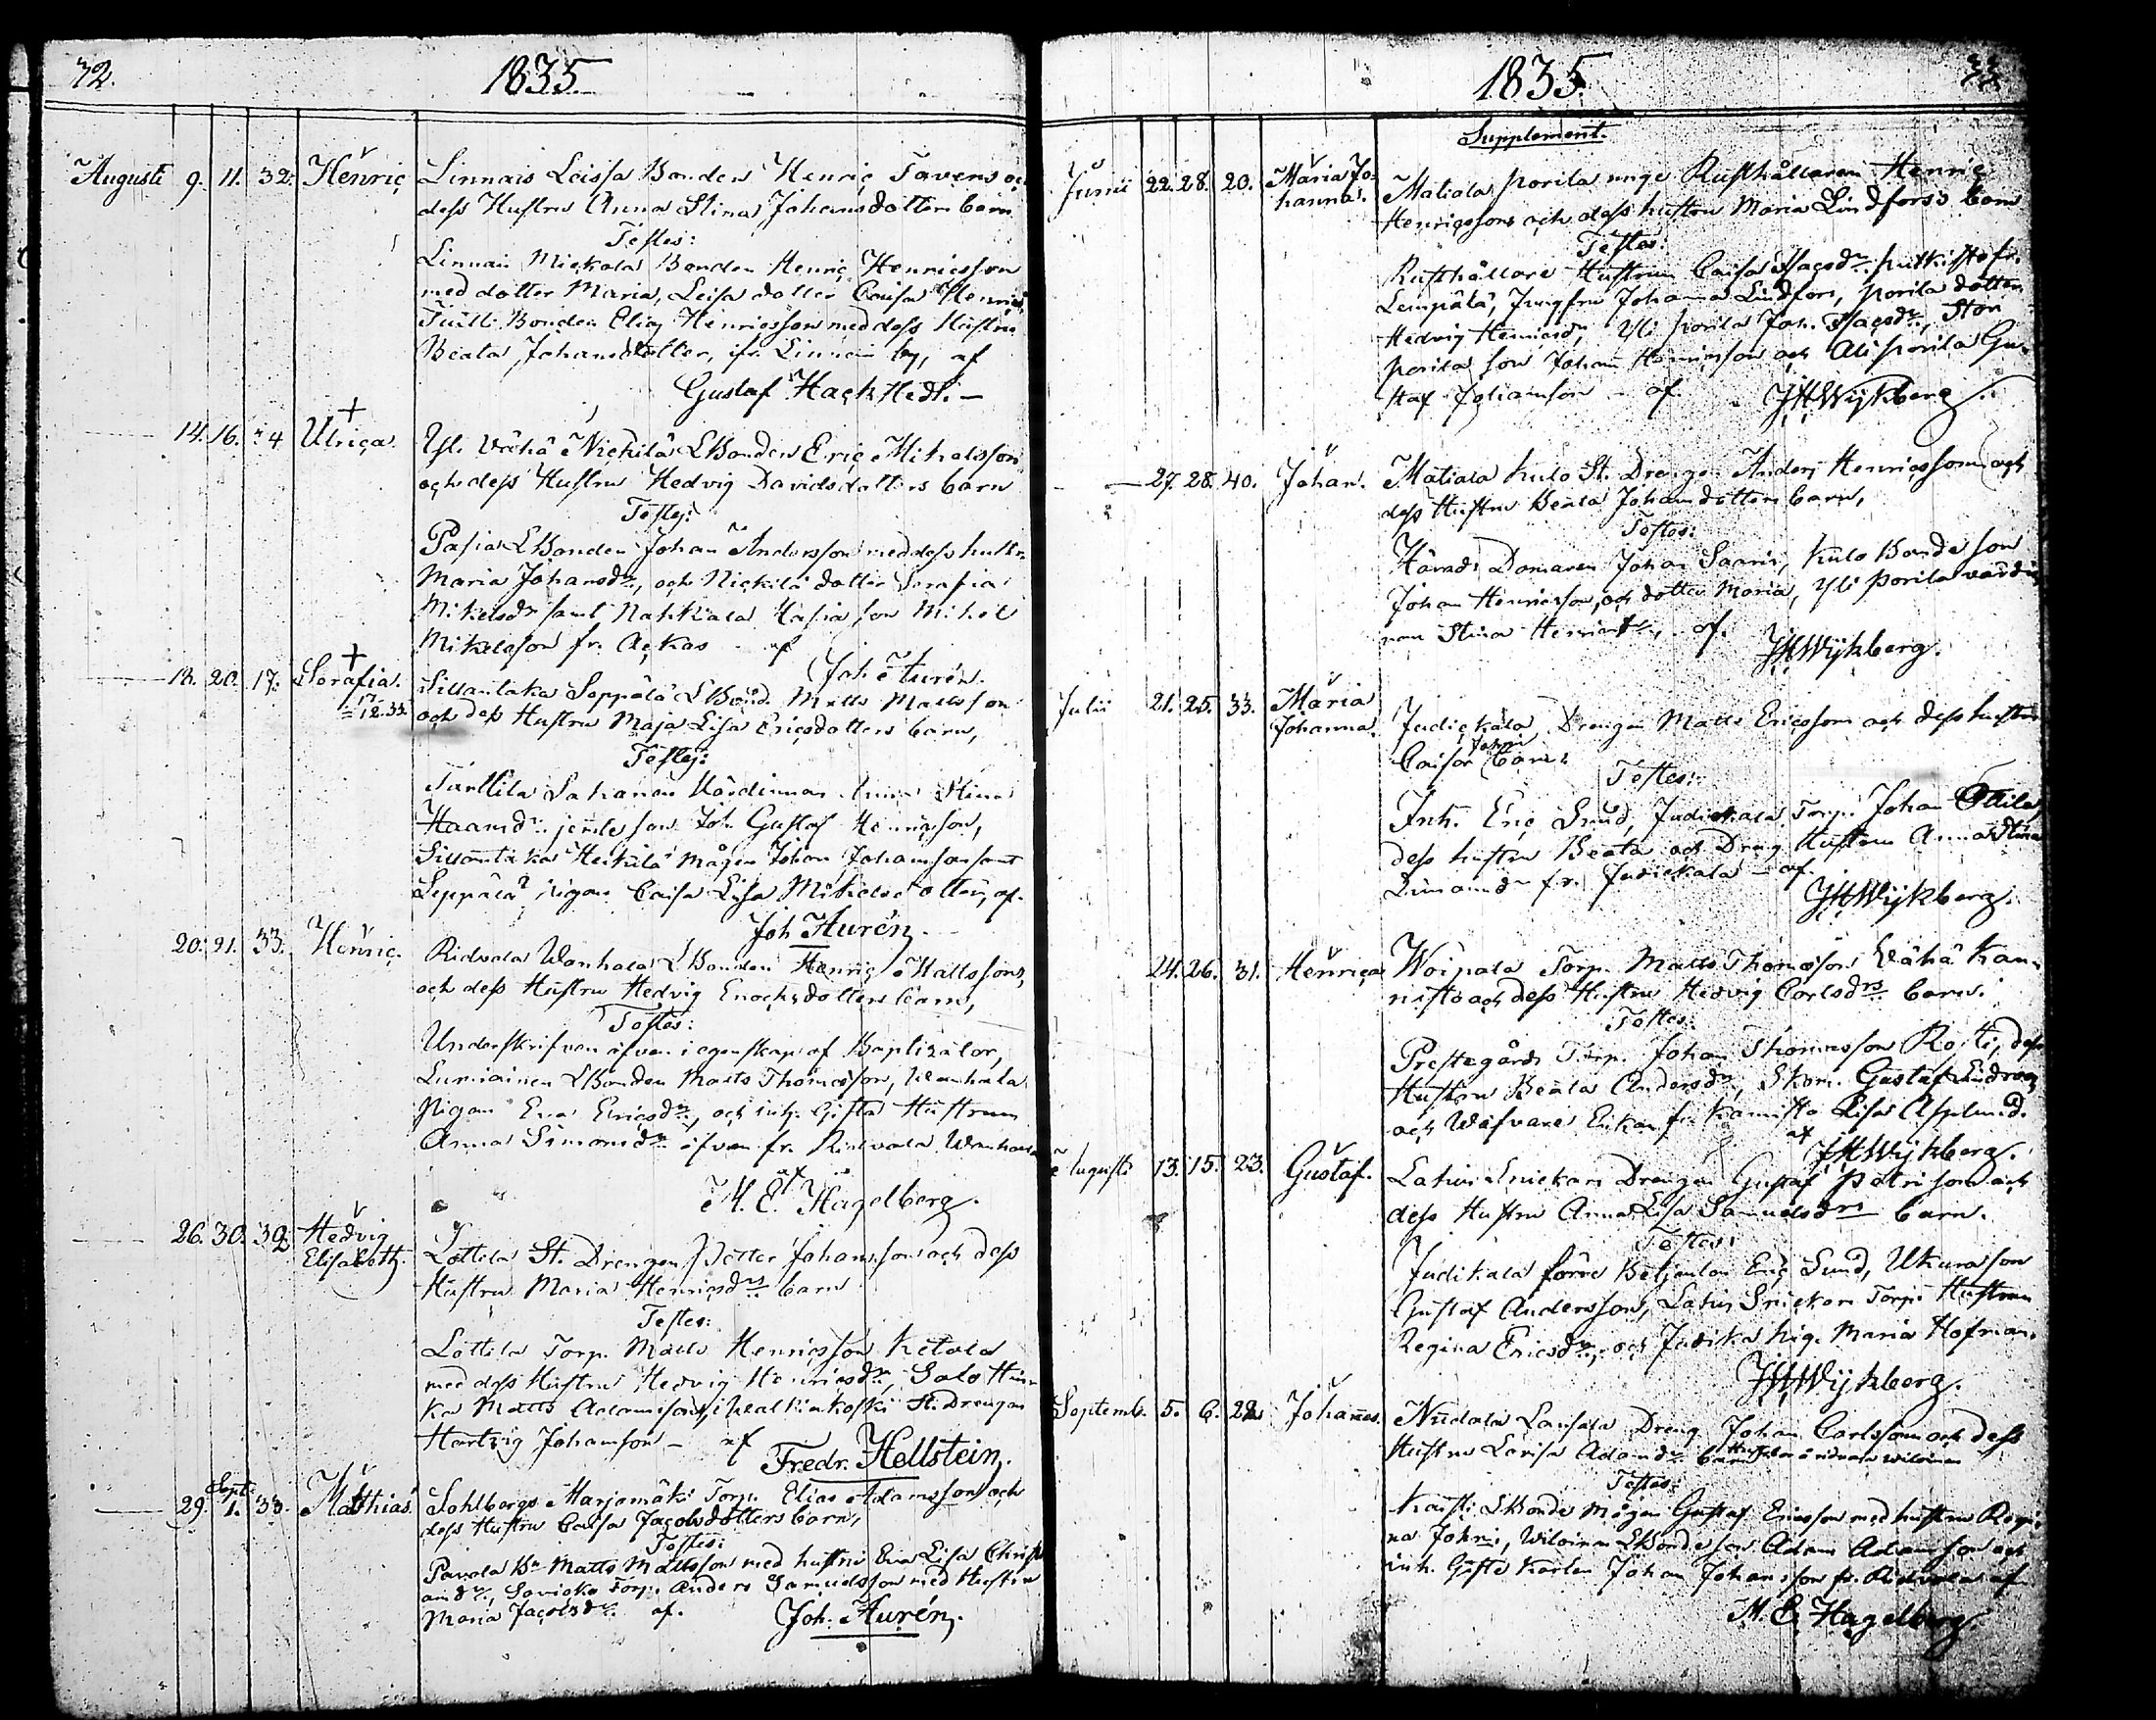 72.
1835
Augusti 9. 11. 32. Henric Linnais Leissa Bonden Henric Tavens oc
dess Hustru Anna Stina Johansdotters barn
Testes:
Linnais Mickala Bonden Henric Henricsson
med dotter Maria, Leisa dotter Caisa Henrics
Bonden Elias Henricsson med dess Hustru
Beata Johansdotter, ifr. Linnais by, af
Gustaf Hackstedt.
14. 16. 24 Ulrica. Yli Vähä Nickilä LBonden Eric Mikelsson
och dess Hustru Hedvig Davidsdotters barn
Testes:
Pasia LBonden Johan Andersson med dess hustr.
Maria Johansdr, och Nickilä dotter Serafia
Mikelsdr samt Nahkiala Hasia son Mikel
Mikelsson fr. Ackas af
Joh. Aurén.
18. 20. 17. Serafia. Sillantaka Seppälä LBond. Matts Mattsson
17/12.33. och dess Hustru Maja Lisa Ericsdotters barn,
Testes:
Tarttila Sakanan Värdinnan Anna Stina
jemte son Joh. Gustaf Henricsson,
Sillantaka Heikilä mågen Johan Johansson samt
Seppälä pigan Caisa Lisa Mikelsdotter, af
Joh Aurén.
20. 21. 33. Henric. Ridvala Wanhala LBonden Henric Mattssons
och dess Hustru Hedvig Enochsdotters barn,
Testes:
Underskrifven äfven i egenskap af Baptizator,
Lumiainen LBonden Matts Thomasson, Wanhala
Pigan Eva Ericsdr, och inh. Gifta Hustrun
Anna Simonsdr äfven fr. Ridvala Wanhala
af
M. E. Hagelberg.
26. 30. 32 Hedvig Lottila St. Drengen Petter Johansson och dess
Elisabeth. Hustru Maria Henricsdrs barn
Testes:
Lottila Torp. Matts Henricsson Ketola
med dess Hustru Hedvig Henricsdr, Salo
Matts Adamsson, Walkiakoski St. Drengen
Hartvig Johansson - af
Fredr. Hellstein.
Sept.
29. 1. 33. Matthias. Sohlbergs Marjamäki Torp. Elias Adamsson och
dess Hustru Caisa Jacobsdotters barn,
Testes:
Pavola Bn Matts Mattsson med hustru Eva Lisa Christi
ansdr, Savicko Torp. Anders Samuelsson med Hustru
Maria Jacobsdr. af.
Joh. Aurén.
1835
Supplement.
Junii 22. 28. 20. Maria Jo- Matiala Porila unge Rusthållaren Henric
hanna. Henricssons och dess hustru Maria Lindforss barn
Testes:
Rusthållare Hustrun Caisa Isacsdr. fr.
Lempälä, Jungfru Johanna Lindfors, Porila dotter
Hedvig Henricsdr, Yli Porila Joh. Isacsdr, Stor
Porila son Johan Henricsson och Ali Porila Gu-
staf Johansson - af
JHWijkberg.
27. 28. 40. Johan. Matiala Kulo St. Drengen Anders Henricsson och
dess Hustru Beata Johansdotters barn,
Testes:
Härads Domaren Johan Saaris, Kulo Bonde son
Johan Henricsson, och dotter Maria, Yli Porila värdin
nan Stina Henricsdr, af.
JHWijkberg.
Julii 21. 25. 33. Maria Judickala Drengen Matts Ericsson och dess hustru
Johanna. Caisa barn.
Testes:
Inh. Eric Sund, Judickala Torp. Johan Ottila,
dess hustru Beata och Dreng Hustrun Anna Stina
fr. Judickala - af.
JHWijkberg.
24. 26. 31. Henrica Woipala Torp. Matts Thomasson Vähä Kan-
nisto och dess Hustru Hedvig Carlsdrs barn.
Testes:
Prestegårds Torp. Johan Thomasson Rosti, dess
Hustru Beata Andersdr, Skom. Gustaf Lindroos
och Wäfvare Enkan fr. Kannisto Lisa Asplund.
af
JHWijkberg.
Augusti 13. 15. 23. Gustaf. Lahis Snickars Drengen Gustaf Petrisson och
dess Hustru Anna Lisa Samuelsdrs barn.
Testes:
Judikala förre Betjenten Eric Sund, Ukura son
Gustaf Andersson, Lahis Snickars Torp. Hustrun
Regina Ericsdr, och Judika Pig. Maria Hofman.
JHWijkberg.
Septemb. 5. 6. 22 Johannes. Niidala Lansala Dreng Johan Carlsson och dess
Hustru Lovisa Adamsdr barn
Testes:
Kaisti LBonde Mågen Gustaf Ericsson med hustru Regi-
na Johns., Wiloinen LBonde son Adam Adamsson och
inh. Gifte Karlen Johan Johansson fr. Ridvala af
M. E. Hagelberg.